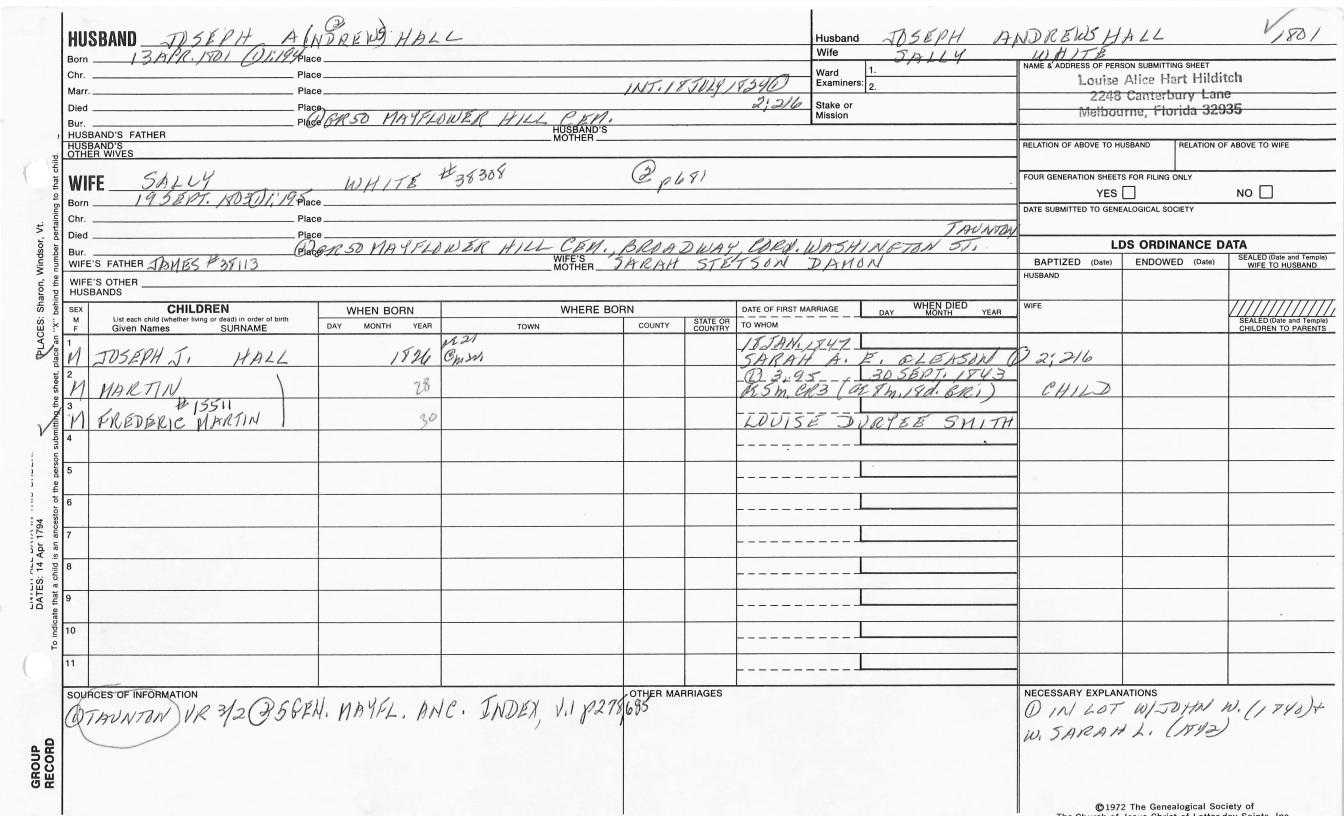 HUSBAND JOSEPH A(NDREWS) HALL
②
Born 13 APR. 1801 ①1;194 Place
Chr. Place
Marr. Place INT. 18 JULY 1824①
Died Place 2;216
Bur. Place ①GR50 MAYFLOWER HILL CEM.
HUSBAND'S FATHER HUSBAND'S MOTHER
HUSBAND'S OTHER WIVES
WIFE SALLY WHITE #38308 ② p681
Born 19 SEPT. 1803①1;195 Place
Chr. Place
Died Place TAUNTON
Bur. Place ①GR50 MAYFLOWER HILL CEM., BROADWAY, CORN. WASHINGTON ST.
WIFE'S FATHER JAMES #38113 WIFE'S MOTHER SARAH STETSON DAMON
WIFE'S OTHER HUSBANDS
Husband JOSEPH ANDREWS HALL ✓1801
Wife SALLY WHITE
Ward Examiners: 1.
2.
Stake or Mission
NAME & ADDRESS OF PERSON SUBMITTING SHEET
Louise Alice Hart Hilditch
2248 Canterbury Lane
Melbourne, Florida 32935
RELATION OF ABOVE TO HUSBAND RELATION OF ABOVE TO WIFE
FOUR GENERATION SHEETS FOR FILING ONLY
YES NO
DATE SUBMITTED TO GENEALOGICAL SOCIETY
LDS ORDINANCE DATA
BAPTIZED (Date) ENDOWED (Date) SEALED (Date and Temple) WIFE TO HUSBAND
HUSBAND
WIFE
SEALED (Date and Temple) CHILDREN TO PARENTS
SEX M F
CHILDREN
List each child (whether living or dead) in order of birth
Given Names SURNAME
WHEN BORN
DAY MONTH YEAR
WHERE BORN
TOWN COUNTY STATE OR COUNTRY
DATE OF FIRST MARRIAGE
TO WHOM
WHEN DIED
DAY MONTH YEAR
1 18 JAN. 1847
M JOSEPH J. HALL 1826 SARAH A. E. GLEASON ① 2;216
2 ① 3;95 30 SEPT. 1843
M MARTIN 28 CHILD
3 #15511
M FREDERIC MARTIN 30 LOUISE DURYEE SMITH
4
5
6
7
8
9
10
11
SOURCES OF INFORMATION
① TAUNTON VR 3/2 ② 5 GEN. MAYFL. ANC. INDEX, V.1 p278,685
OTHER MARRIAGES
NECESSARY EXPLANATIONS
① IN LOT W/JOHN W. (1840)+
W. SARAH L. (1842)
©1972 The Genealogical Society of
The Church of Jesus Christ of Latter-day Saints, Inc.
PLACES: Sharon, Windsor, Vt.
DATES: 14 Apr 1794
To indicate that a child is an ancestor of the person submitting the sheet, place an "X" behind the number pertaining to that child
GROUP RECORD